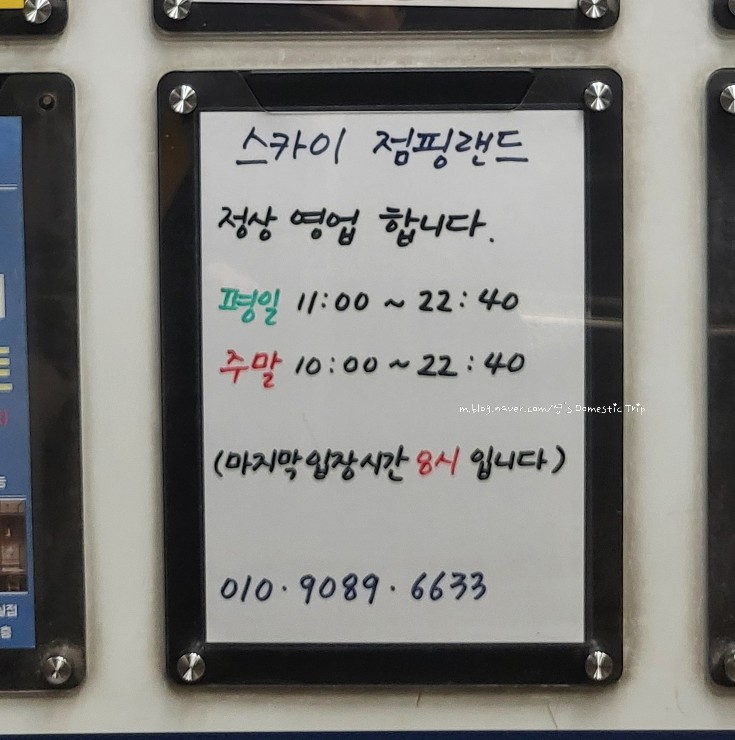 스카이 점핑랜드
정상 영업 합니다.
평일 11:00 ~ 22:40
주말 10:00 ~ 22:40
m.blog.naver.com/ 's Domestic Trip
(마지막입장시간 8시 입니다)
010·9089·6633